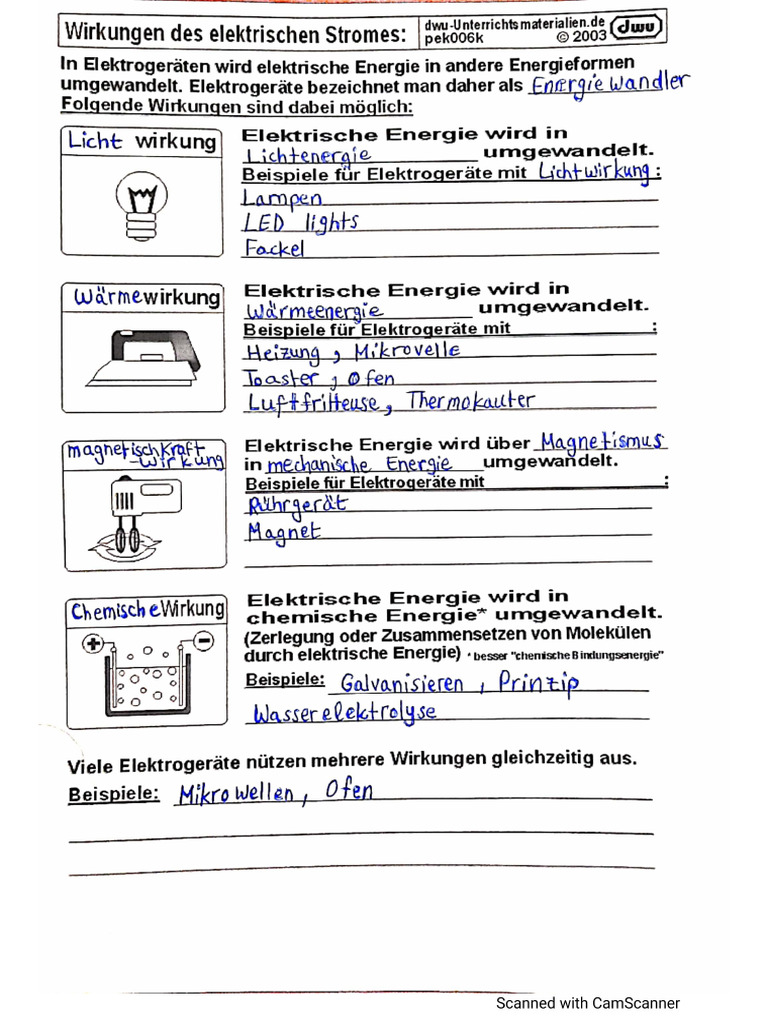 Wirkungen des elektrischen Stromes:
dwu-Unterrichtsmaterialien.de
pek006k © 2003
dwu
In Elektrogeräten wird elektrische Energie in andere Energieformen
umgewandelt. Elektrogeräte bezeichnet man daher als Energie Wandler
Folgende Wirkungen sind dabei möglich:
Licht wirkung
Elektrische Energie wird in
Lichtenergie umgewandelt.
Beispiele für Elektrogeräte mit Lichtwirkung:
Lampen
LED lights
Fackel
Wärmewirkung
Elektrische Energie wird in
Wärmeenergie umgewandelt.
Beispiele für Elektrogeräte mit :
Heizung, Mikrovelle
Toaster, Ofen
Luftfritteuse, Thermokauter
magnetischKraft
-wirkung
Elektrische Energie wird über Magnetismus
in mechanische Energie umgewandelt.
Beispiele für Elektrogeräte mit :
Rührgerät
Magnet
Chemische Wirkung
+ −
Elektrische Energie wird in
chemische Energie* umgewandelt.
(Zerlegung oder Zusammensetzen von Molekülen
durch elektrische Energie) * besser "chemische Bindungsenergie"
Beispiele: Galvanisieren, Prinzip
Wasserelektrolyse
Viele Elektrogeräte nützen mehrere Wirkungen gleichzeitig aus.
Beispiele: Mikrowellen, Ofen
Scanned with CamScanner